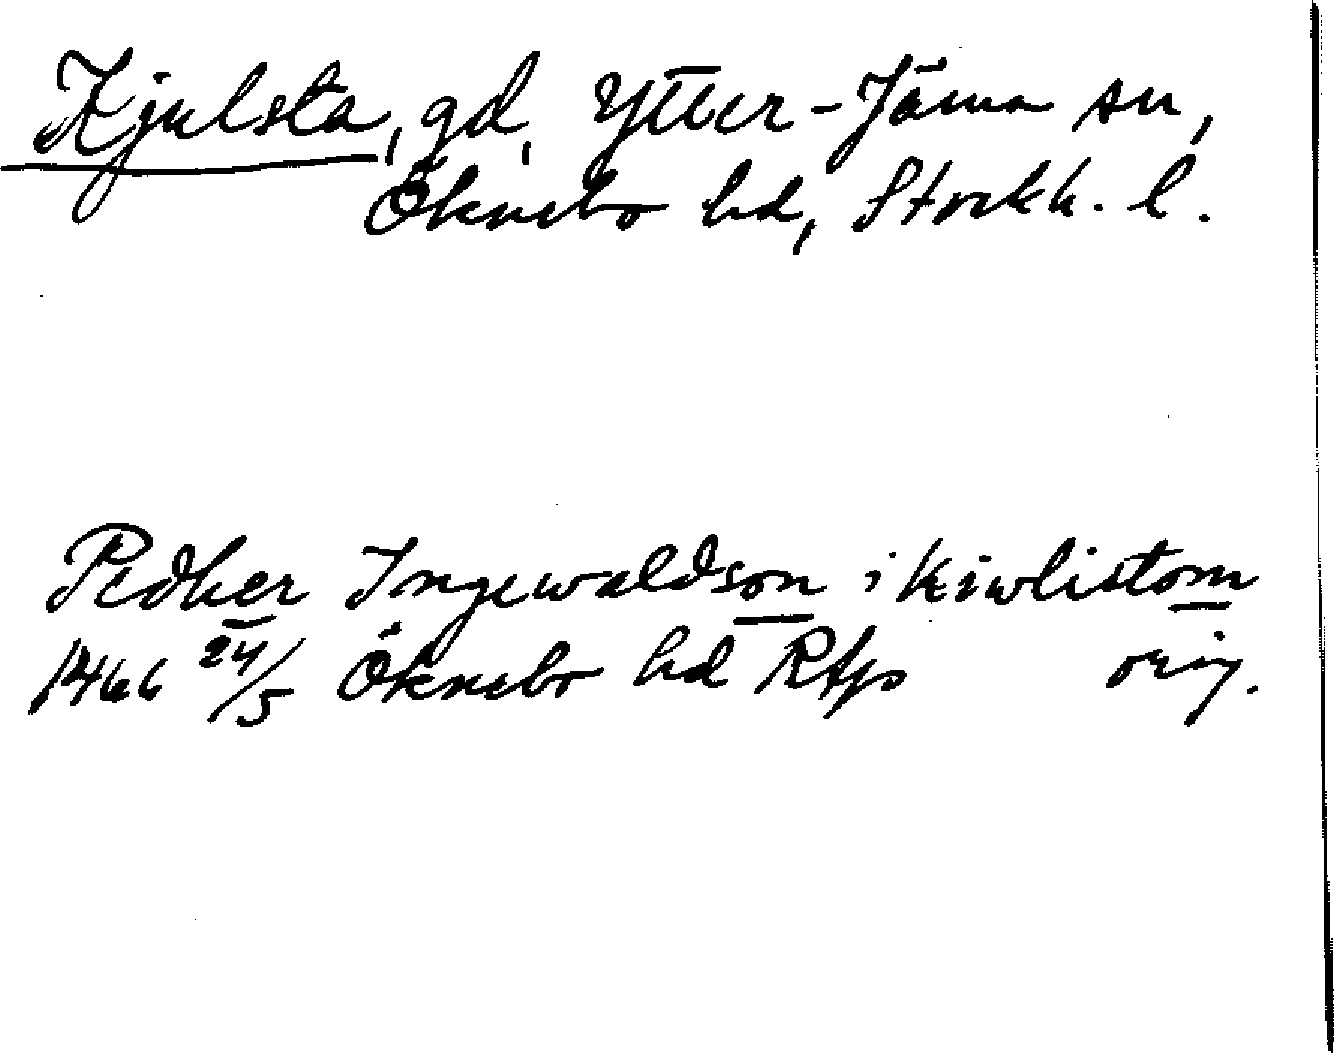 Kjulsta, gd, Ytter-Järna sn,
Öknebo hd, Stockh. l.
Pedher Ingewaldson i kiwlistom
1466 24/5 Öknebo hd Rfp orig.